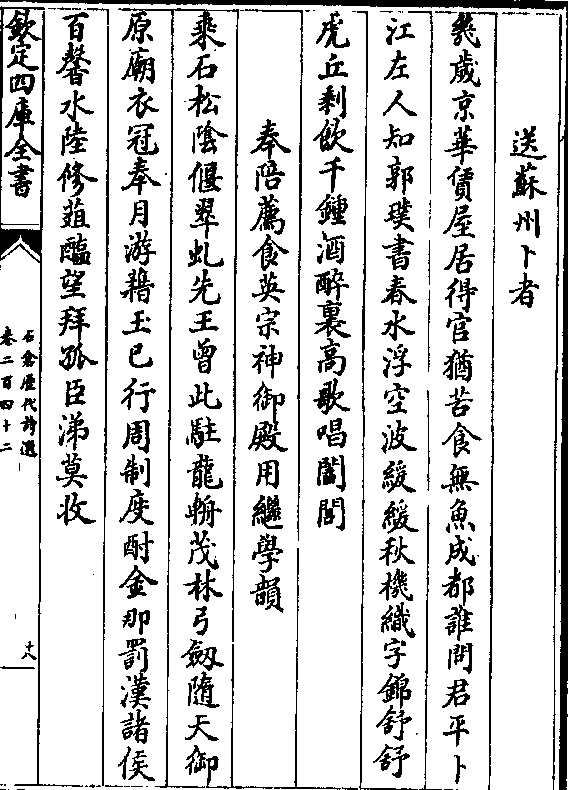 送蘇州卜者
幾歲京華賃屋居得官猶苦食無魚成都誰問君平卜
江左人知郭璞書春水浮空波緩緩秋機織字錦舒舒
虎丘剩飲千鍾酒醉裏高歌唱闔閭
奉陪薦食英宗神御殿用繼學韻
乘石松陰偃翠虬先王曾此駐龍輈茂林弓劒隨天御
原廟衣冠奉月游藉玉已行周制度酎金那罰漢諸侯
百馨水陸修葅醢望拜孤臣涕莫收
欽定四庫全書
石倉歷代詩選
卷二百四十二